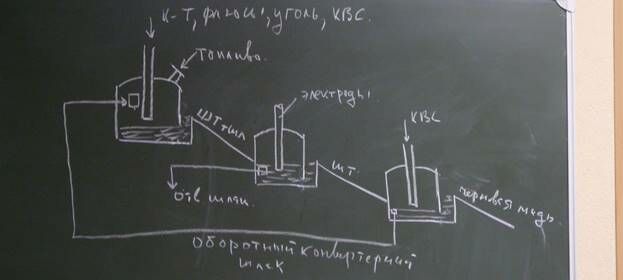 К-Т, флюсы, уголь, КВС.
Топливо.
ШТ+шл
электроды
КВС
ШТ.
Отв шлак.
черновая медь.
Оборотный конвертерный
шлак